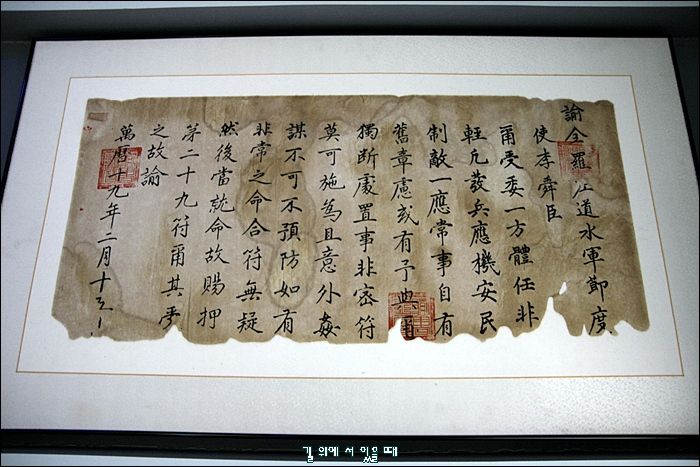 諭全羅左道水軍節度
使李舜臣
爾受委一方體任非
輕凡發兵應機安民
制敵一應常事自有
舊章慮或有予與爾
獨斷處置事非密符
莫可施為且意外姦
謀不可不預防如有
非常之命合符無疑
然後當就命故賜押
第二十九符爾其受
之故諭
萬曆十九年二月十
길 위에 서 있을 때